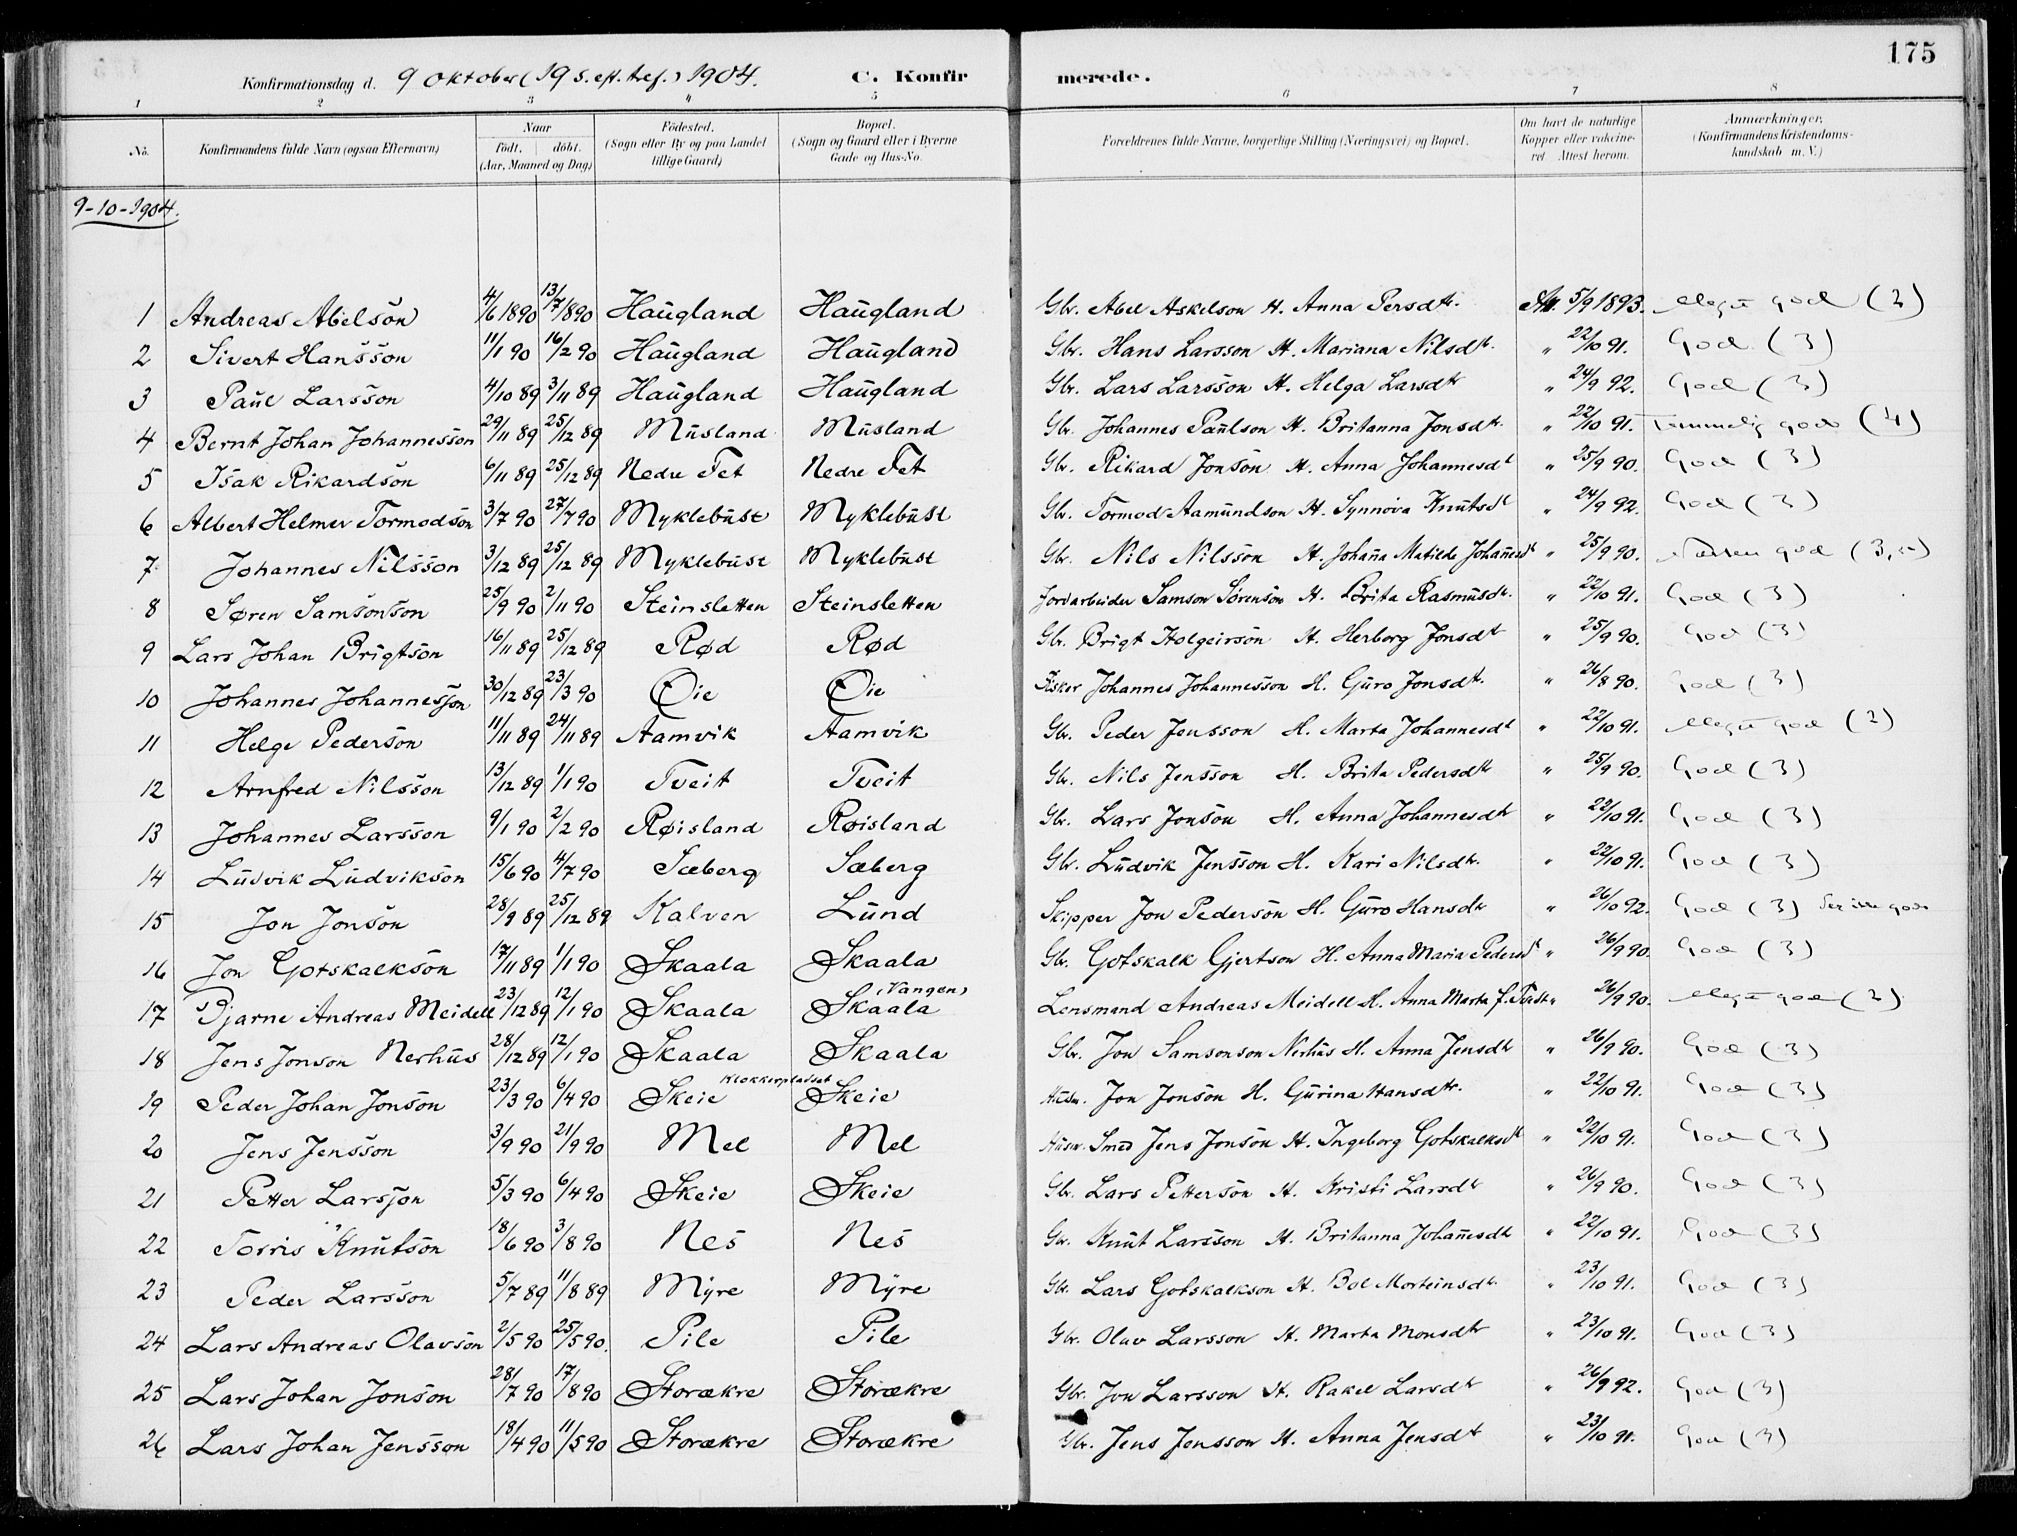 175
Konfirmationsdag d. 9 Oktober (19 s. eft. tref.) 1904. C. Konfirmerede.
1 2 3 4 5 6 7 8
No. Konfirmandens fulde Navn (ogsaa Efternavn) Naar født. døbt. (Aar, Maaned og Dag) Fødested. (Sogn eller By og paa Landet tillige Gaard) Bopæl. (Sogn og Gaard eller i Byerne Gade og Hus-No. Forældrenes fulde Navne, borgerlige Stilling (Næringsvei) og Bopæl. Om havt de naturlige Kopper eller vakcineret. Attest herom. Anmærkninger. (Konfirmandens Kristendomskundskab m. V.)
9-10-1904.
1 Andreas Abelson 4/6 1890 13/7 1890 Haugland Haugland Gbr. Abel Askelson H. Anna Persdtr. Att. 5/9 1893. Meget god (2)
2 Sivert Hansson 11/1 90 16/2 90 Haugland Haugland Gbr. Hans Larsson H. Mariana Nilsdt. " 22/10 91. God (3)
3 Paul Larsson 4/10 89 3/11 89 Haugland Haugland Gbr. Lars Larsson H. Helga Larsdtr " 24/9 92. God (3)
4 Bernt Johan Johannesson 29/11 89 25/12 89 Musland Musland Gbr. Johannes Paulson H. Britanna Jonsdtr. " 22/10 91. Temmelig god (4)
5 Isak Rikardson 6/11 89 25/12 89 Nedre Fet Nedre Fet Gbr. Rikard Jonson H. Anna Johannesdt " 25/9 90. God (3)
6 Albert Helmer Tormodson 3/7 90 27/7 90 Myklebust Myklebust Gbr. Tormod Aamundson H. Synnøva Knutsdt " 24/9 92. God (3)
7 Johannes Nilsson 3/12 89 25/12 89 Myklebust Myklebust Gbr. Nils Nilsson H. Johana Matilde Johanesdt " 25/9 90. Næsten god (3,50)
8 Søren Samsonson 25/9 90 2/11 90 Steinsletten Steinsletten Jordarbeider Samson Sørenson H. Brita Rasmusdt. " 22/10 91. God (3)
9 Lars Johan Brigtson 16/11 89 25/12 89 Rød Rød Gbr. Brigt Holgeirson H. Herborg Jonsdt " 25/9 90. God (3)
10 Johannes Johannesson 30/12 89 23/3 90 Øie Øie Fisker Johannes Johannesson H. Guro Jonsdtr. " 26/8 90. God (3)
11 Helge Pederson 11/11 89 24/11 89 Aamvik Aamvik Gbr. Peder Jensson H. Marta Johannesdt " 22/10 91. Meget god (2)
12 Arnfred Nilsson 13/12 89 1/1 90 Tveit Tveit Gbr. Nils Jensson H. Brita Pedersdtr " 25/9 90. God (3)
13 Johannes Larsson 9/1 90 2/2 90 Røisland Røisland Gbr. Lars Jonson H. Anna Johannesdtr " 22/10 91. God (3)
14 Ludvik Ludvikson 15/6 90 4/7 90 Sæberg Sæberg Gbr. Ludvik Jensson H. Kari Nilsdtr. " 22/10 91. God (3)
15 Jon Jonson 28/9 89 25/12 89 Kalven Lund Skipper Jon Pederson H. Guro Hansdtr " 26/10 92. God (3)
16 Jon Gotskalkson 17/11 89 1/1 90 Skaala Skaala Gbr. Gotskalk Gjertson H. Anna Maria Pedersdt " 26/9 90. God (3)
17 Bjarne Andreas Meidell 23/12 89 12/1 90 Skaala Skaala (Vangen) Lensmand Andreas Meidell H. Anna Marta f. " 26/9 90. Meget god (2)
18 Jens Jonson Nerhus 28/12 89 12/1 90 Skaala Skaala Gbr. Jon Samsonson Nerhus H. Anna Jensdtr " 26/9 90. God (3)
19 Peder Johan Jonson 23/3 90 6/4 90 Skeie Klokkerpladset Skeie Husm. Jon Jonson H. Gurina Hansdtr. " 22/10 91. God (3)
20 Jens Jensson 3/9 90 21/9 90 Mel Mel Husm. Smed Jens Jonson H. Ingeborg Gotskalksdt " 22/10 91. God (3)
21 Petter Larsson 5/3 90 6/4 90 Skeie Skeie Gbr. Lars Petterson H. Kristi Larsdt " 26/9 90. God (3)
22 Torris Knutson 18/6 90 3/8 90 Nes Nes Gbr. Knut Larsson H. Britanna Johanesdtr " 22/10 91. God (3)
23 Peder Larsson 5/7 89 11/8 89 Myre Myre Gbr. Lars Gotskalkson H. Bol Morteinsdt. " 23/10 91. God (3)
24 Lars Andreas Olavson 2/5 90 25/5 90. Pile Pile Gbr. Olav Larsson H. Marta Monsdtr " 23/10 91. God (3)
25 Lars Johan Jonson 28/7 90 17/8 90 Storækre Storækre Gbr. Jon Larsson H. Rakel Larsdtr " 26/9 92. God (3)
26 Lars Johan Jensson 18/4 90 11/5 90 Storækre Storækre Gbr. Jens Jensson H. Anna Jensdt " 23/10 91. God (3)